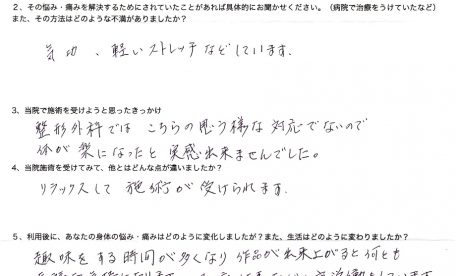 2、その悩み・痛みを解決するためにされていたことがあれば具体的にお聞かせください。（病院で治療をうけていたなど）
また、その方法はどのような不満がありましたか？
気功、軽いストレッチなどしています.
3、当院で施術を受けようと思ったきっかけ
整形外科では こちらの思う様な対応でないので
体が楽になったと実感出来ませんでした。
4、当院施術を受けてみて、他とはどんな点が違いましたか？
リラックスして施術が受けられます.
5、利用後に、あなたの身体の悩み・痛みはどのように変化しましたが？また、生活はどのように変わりましたか？
趣味をする時間が多くなり 作品が出来上がると何とも